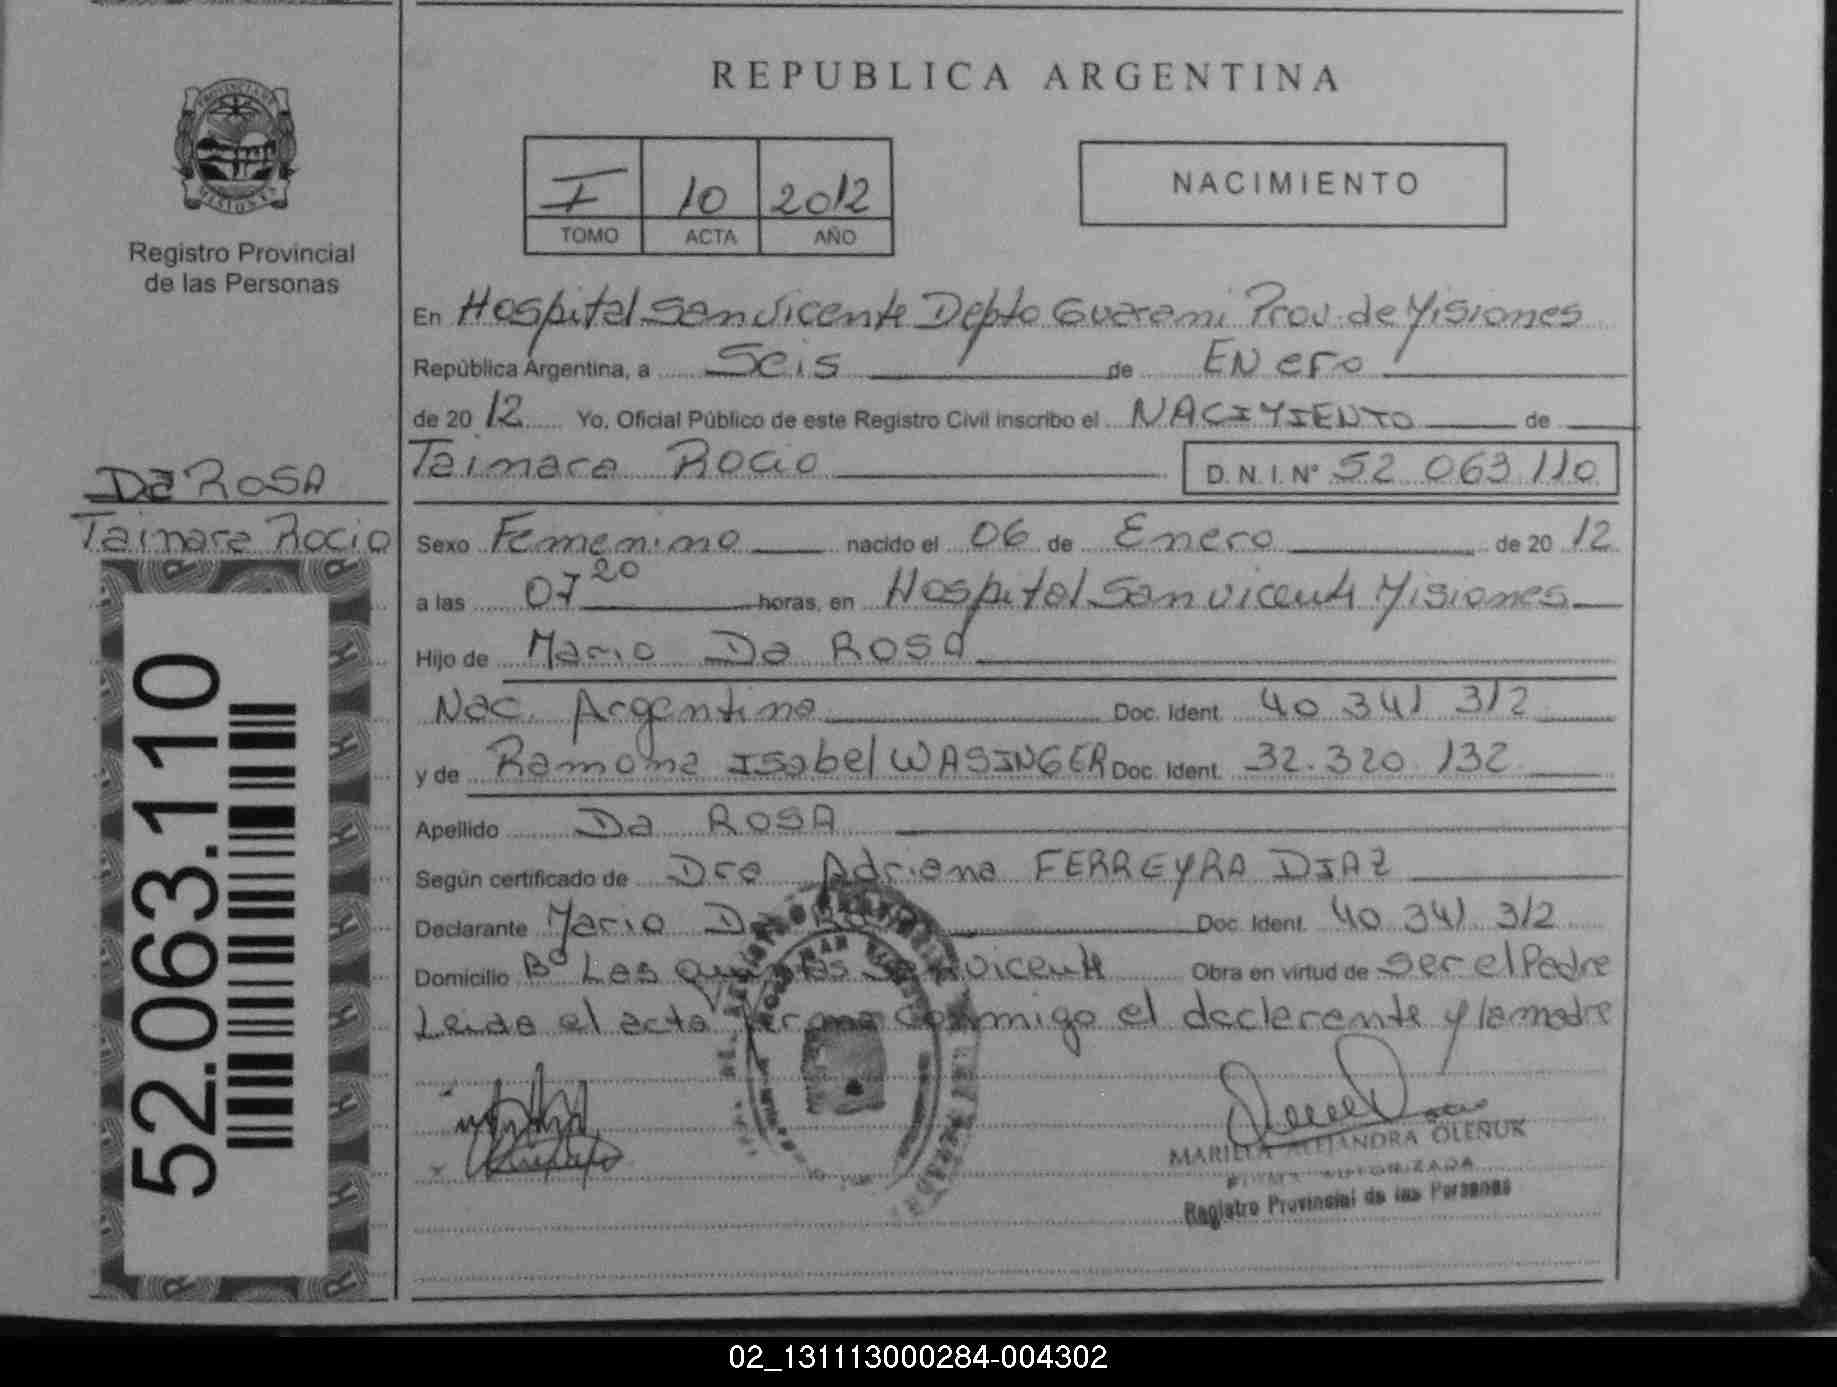 REPUBLICA ARGENTINA
PROVINCIA DE
MISIONES
Registro Provincial
de las Personas
I 10 2012
TOMO ACTA AÑO
NACIMIENTO
En Hospital San Vicente Depto Guarani Prov. de Misiones
República Argentina, a Seis de Enero
de 2012 Yo, Oficial Público de este Registro Civil inscribo el NACIMIENTO de
Tainara Rocio D.N.I. N° 52.063.110
Da ROSA
Tainara Rocio
52.063.110
Sexo Femenino nacido el 06 de Enero de 2012
a las 07 20 horas, en Hospital San Vicente Misiones
Hijo de Mario Da ROSA
Nac. Argentina Doc. Ident. 40 341 312
y de Ramona Isabel WASINGER Doc. Ident. 32.320.132
Apellido Da ROSA
Según certificado de Dra Adriana FERREYRA DIAZ
Declarante Mario Da Doc. Ident. 40 341 312
Domicilio B° Las Quintas San Vicente Obra en virtud de ser el Padre
Leida el acta firma conmigo el declarante y la madre
MARIELA ALEJANDRA OLENUK
FIRMA AUTORIZADA
Registro Provincial de las Personas
02_131113000284-004302